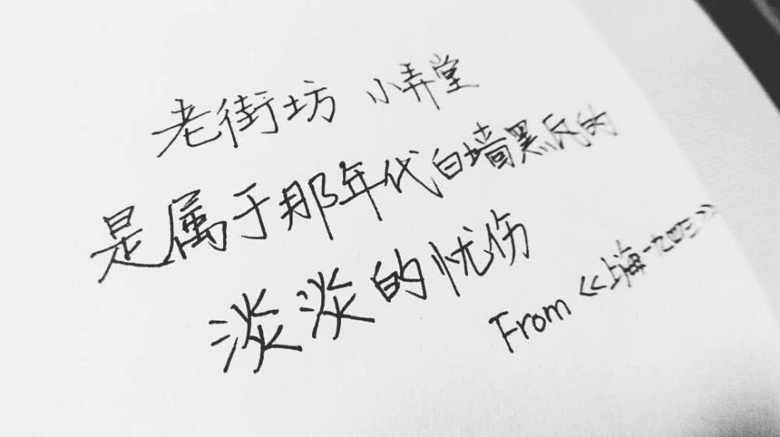 老街坊 小弄堂
是属于那年代白墙黑瓦的
淡淡的忧伤
From《上海一九四三》